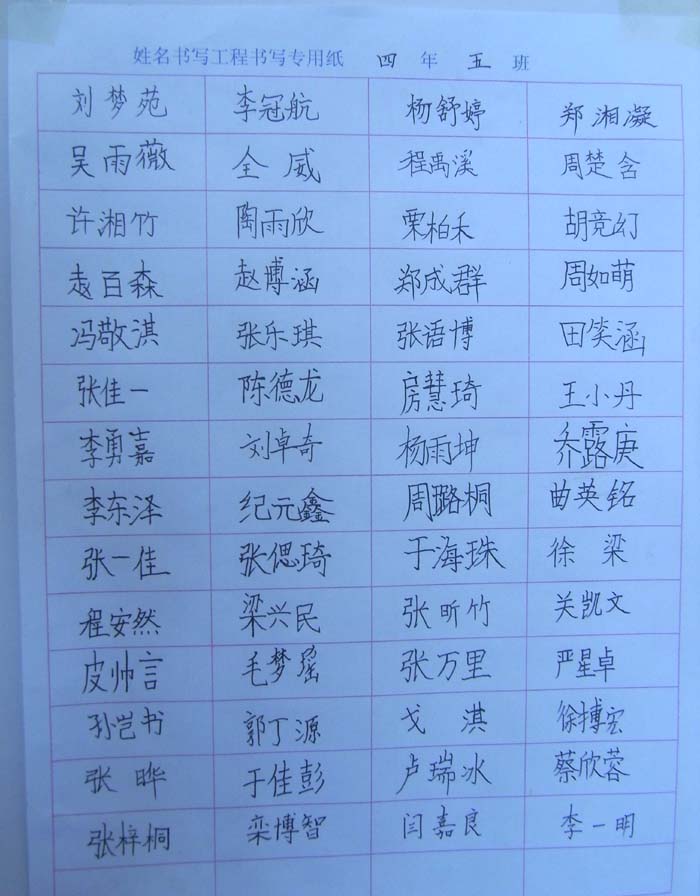 姓名书写工程书写专用纸 四 年 五 班
刘梦苑 李冠航 杨舒婷 郑湘凝
吴雨薇 全威 程禹溪 周楚含
许湘竹 陶雨欣 栗柏禾 胡竞幻
袁百森 赵博涵 郑成群 周如萌
冯敬淇 张乐琪 张语博 田笑涵
张佳一 陈德龙 房慧琦 王小丹
李勇嘉 刘卓奇 杨雨坤 乔露庚
李东泽 纪元鑫 周璐桐 曲英铭
张一佳 张偲琦 于海珠 徐梁
程安然 梁兴民 张昕竹 关凯文
皮帅言 毛梦瑶 张万里 严星卓
孙岂书 郭丁源 戈淇 徐搏宏
张晔 于佳彭 卢瑞冰 蔡欣蓉
张梓桐 栾博智 闫嘉良 李一明